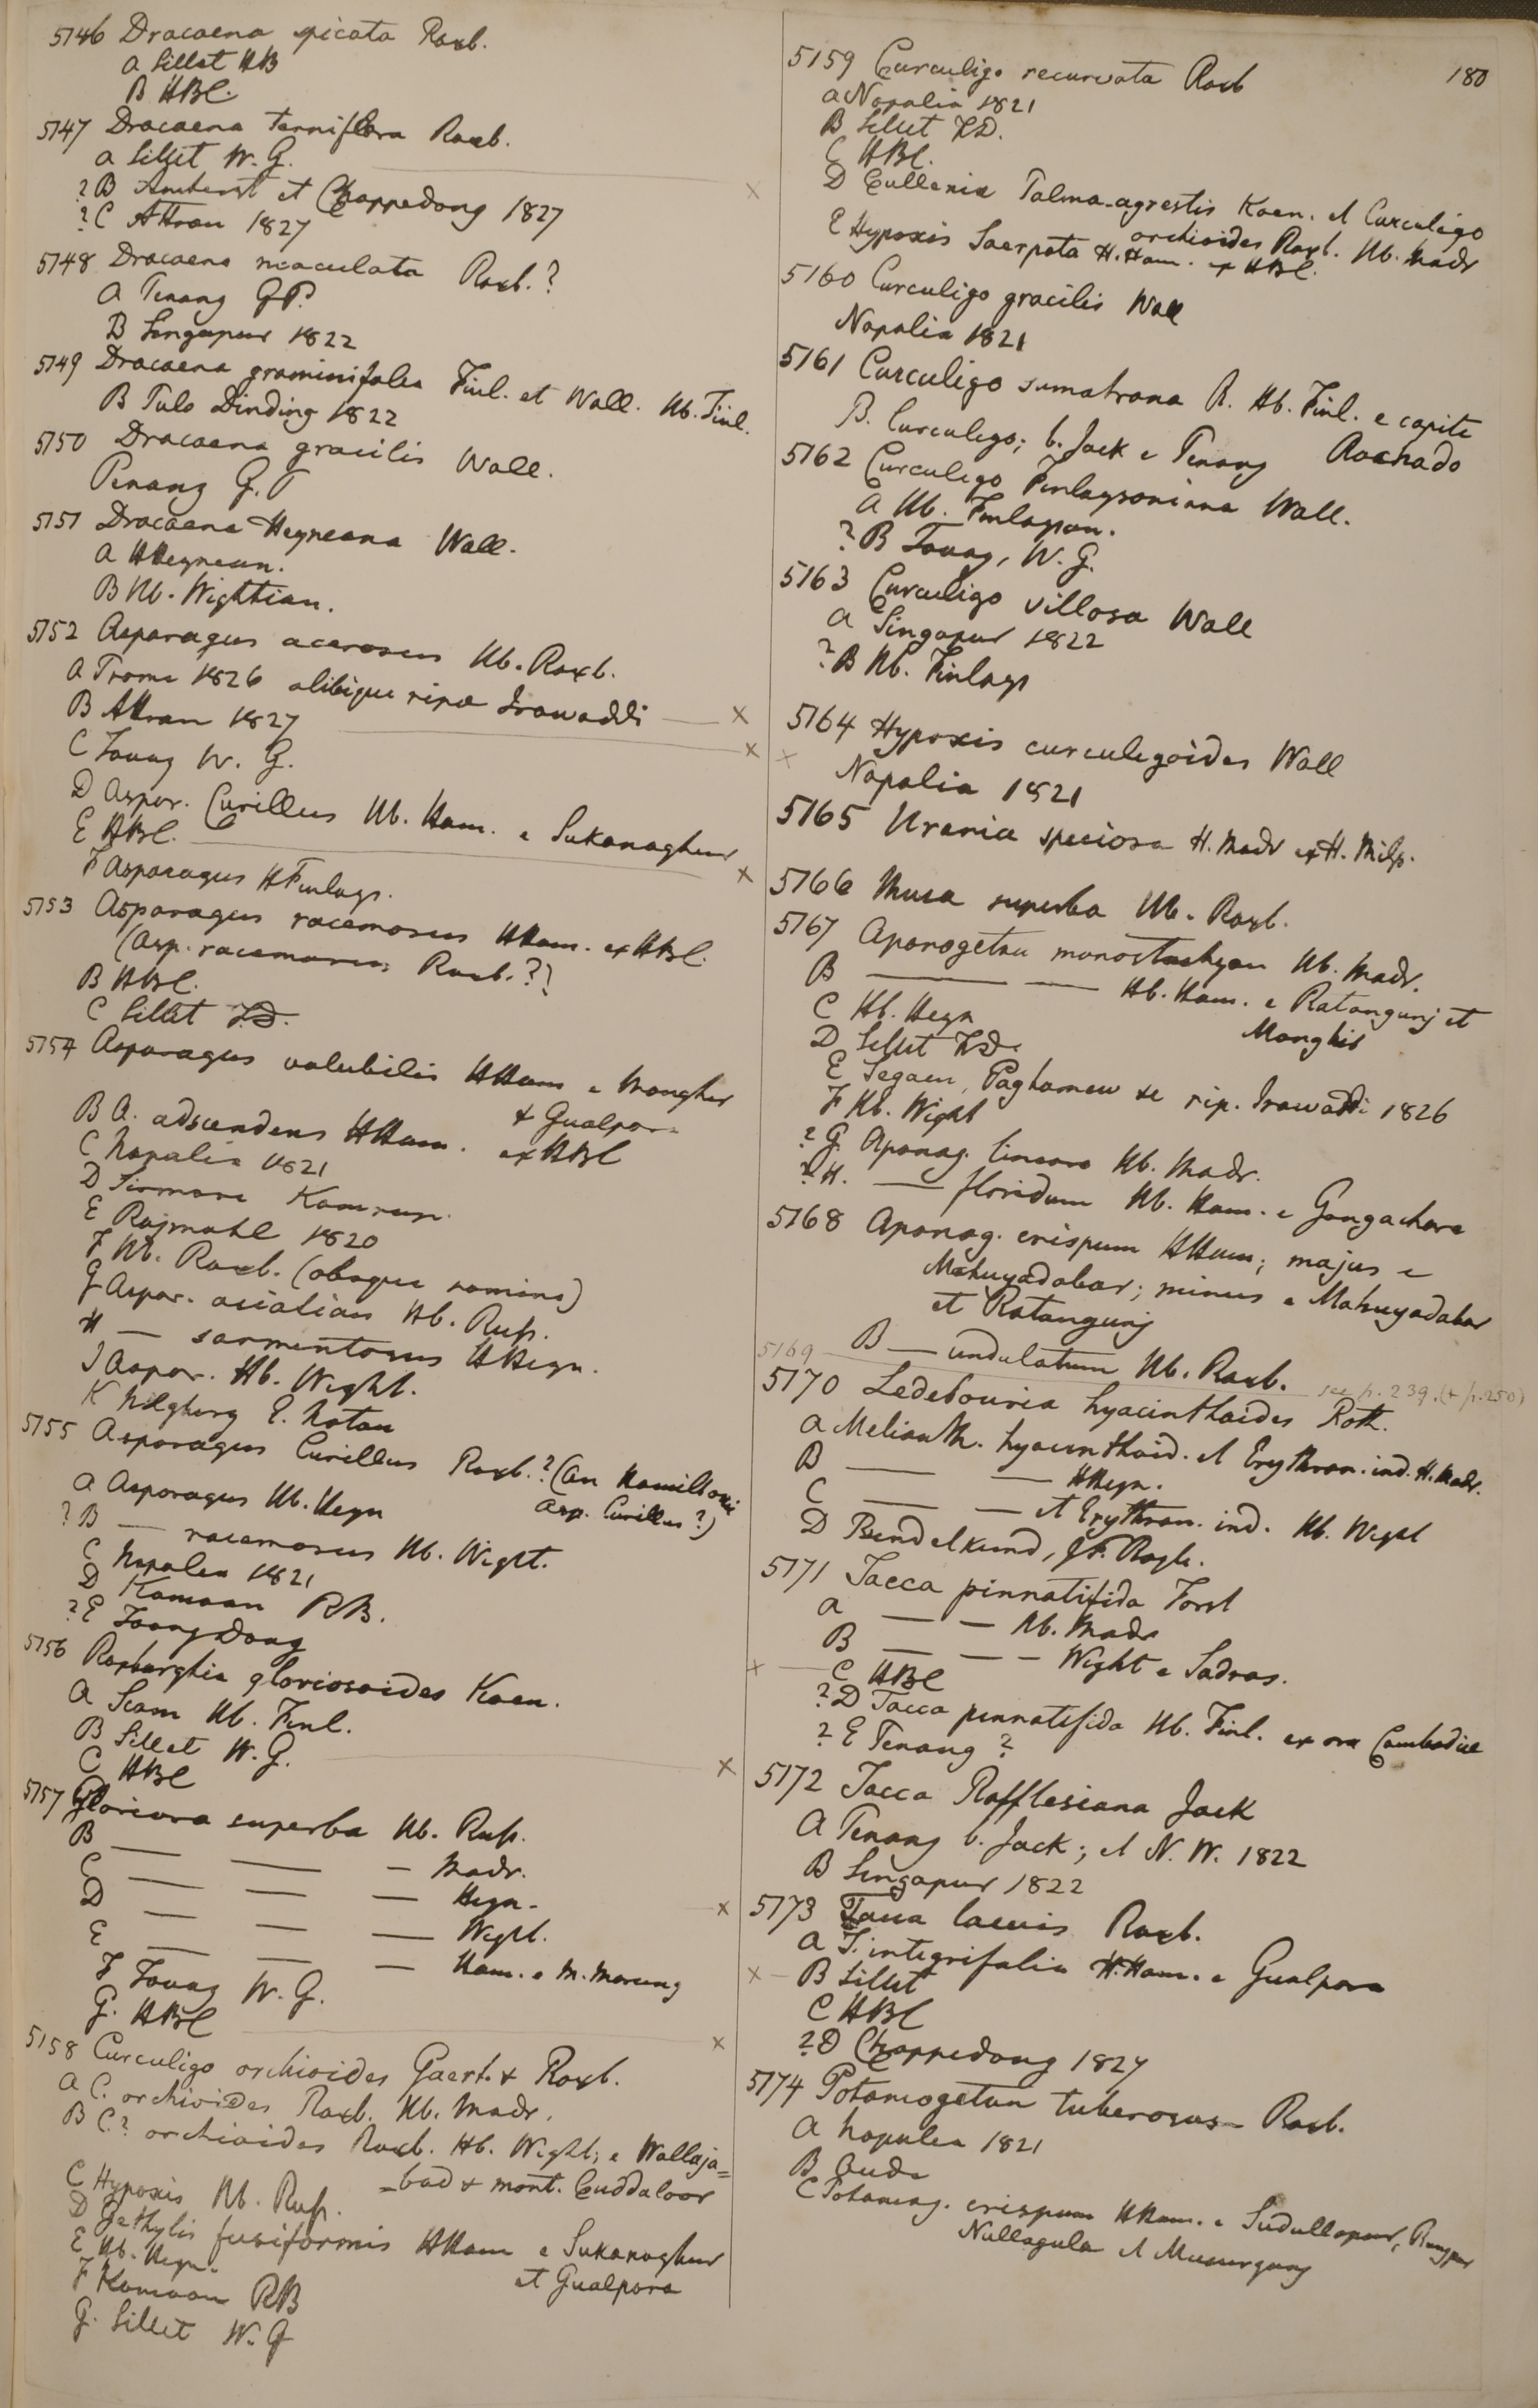 5746 Dracaena spicata Roxb.
a Sillet HB
B HBC.
5147 Dracaena terniflora Roxb.
a Sillet W. G.
? B Amherst et Chappedong 1827
? C Attran 1827
5148 Dracaena maculata Roxb. ?
a Penang G.P.
B Singapur 1822
5149 Dracaena graminifolia Finl. et Wall. Hb. Finl.
B Pulo Dinding 1822
5150 Dracaena gracilis Wall.
Penang G. P
5151 Dracaena Heyneana Wall.
a HHeynean.
B Hb. Wightian.
5152 Asparagus acerosus Hb. Roxb.
a Prome 1826 alibique ripae Irawaddi — x
B Attran 1827
C Tavoy W. G.
D Aspar. Curillus Hb. Ham. e Sukanaghur
E HBC.
F Asparagus HFinlays.
5153 Asparagus racemosus HHam. ex HBC.
(Asp. racemosus Roxb. ?)
B HBC.
C Sillet F.D.
5154 Asparagus volubilis HHam e Mongher
& Gualpara
B A. adscendens HHam. ex HBC
C Napalia 1821
D Sirmore Kamrup.
E Rajmahl 1820
F Hb. Roxb. (absque nomine)
G Aspar. asiaticus Hb. Russ.
H — sarmentosus HHeyn.
J Aspar. Hb. Wight.
K Nilghery E. Noton
5155 Asparagus Curillus Roxb. ? (an Hamiltonii
Asp. Curillus ?)
a Asparagus Hb. Heyn
? B — racemosus Hb. Wight.
C Napalia 1821
D Kamaon RB.
? E Toong Dong
5156 Roxburghia gloriosoides Koen.
a Siam Hb. Finl.
B Sillet W. G.
C HBC
5157 Gloriosa superba Hb. Russ.
B — — — Madr.
C — — — Heyn.
D — — — Wight.
E — — — Ham. e M. Morung
F Tavoy W. G.
G. HBC
5158 Curculigo orchioides Gaert. & Roxb.
a C. orchioides Roxb. Hb. Madr.
B C. ? orchioides Roxb. Hb. Wight; e Wallaja=
-bad & mont. Cuddaloor
C Hypoxis Hb. Russ.
D Gethylis fusiformis HHam e Sukanaghur
et Gualpara
E Hb. Heyn.
F Kamaon RB
G. Sillet W. G
180
5159 Curculigo recurvata Roxb
a Napalia 1821
B Sillet F.D.
C HBC.
D Cullenia Palma-agrestis Koen. et Curculigo
orchioides Roxb. Hb. Madr
E Hypoxis H. Ham. ex HBC.
5160 Curculigo gracilis Wall
Napalia 1821
5161 Curculigo sumatrana R. Hb. Finl. e capite
Rachado
B. Curculigo; b. Jack e Penang
5162 Curculigo Finlaysoniana Wall.
a Hb. Finlayson.
? B Tavoy, W. G.
5163 Curculigo villosa Wall
a Singapur 1822
? B Hb. Finlays
5164 Hypoxis curculigoides Wall
Napalia 1821
5165 Urania speciosa H. Madr ex H. Milp.
5166 Musa superba Hb. Roxb.
5167 Aponogeton monostachyon Hb. Madr.
B — — Hb. Ham. e Ratangunj et
Monghir
C Hb. Heyn
D Sillet F.D.
E Segaen, Paghamew &c rip. Irawaddi 1826
F Hb. Wight
? G. Aponog. lineare Hb. Madr.
? H. — floridum Hb. Ham. e Gongachora
5168 Aponog. crispum HHam; majus e
Mahuyadabar; minus e Mahuyadabar
et Ratangunj
5169 B — undulatum Hb. Roxb. see p. 239. (& p. 250)
5170 Ledebouria hyacinthoides Roth.
a Melianth. hyacinthoid. et Erythron. ind. H. Madr.
B — — HHeyn.
C — — et Erythron. ind. Hb. Wight
D Bundelkund, Royle.
5171 Tacca pinnatifida Forst
a — — Hb. Madr
B — — — Wight e Sadras.
C HBC
? D Tacca pinnatifida Hb. Finl. ex ora Cambodiae
? E Penang ?
5172 Tacca Rafflesiana Jack
a Penang b. Jack; et N. W. 1822
B Singapur 1822
5173 Tacca laevis Roxb.
a T. integrifolia H. Ham. e Gualpara
B Sillet
C HBC
? D Chappedong 1827
5174 Potamogeton tuberosus Roxb.
a Napalia 1821
B Oude
C Potamog. crispum HHam. e Sudullapur, Rungpur
Nullagula et Musurgunj